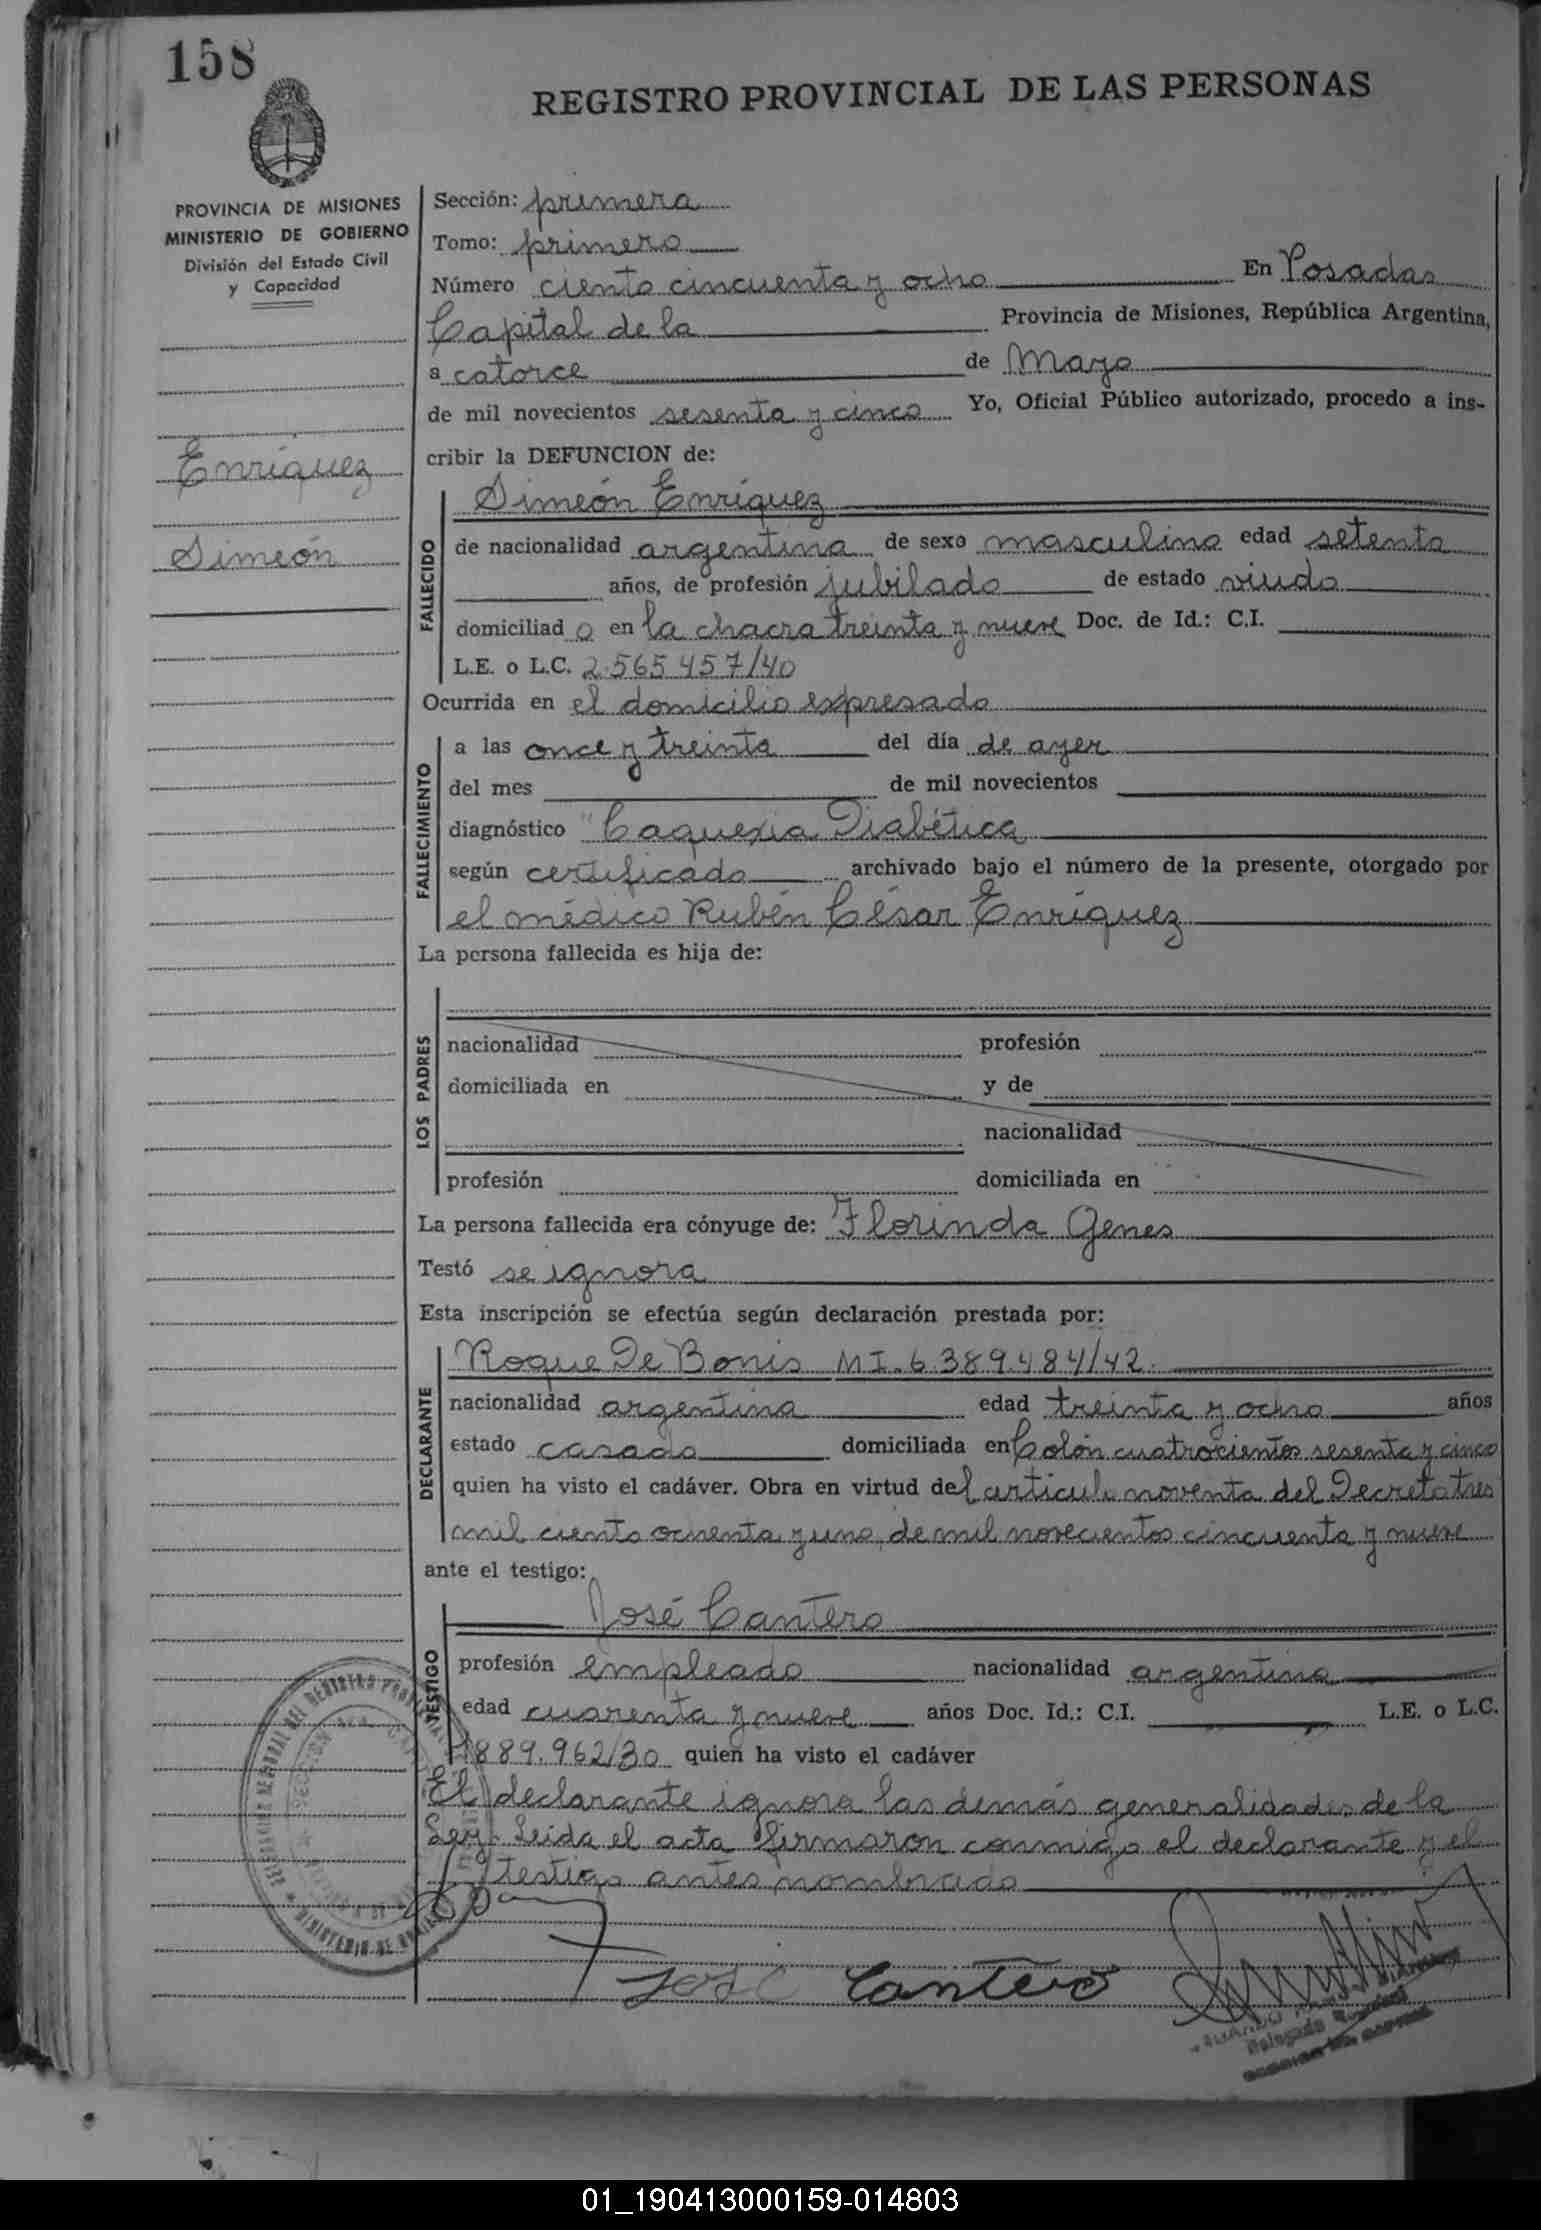 158
REGISTRO PROVINCIAL DE LAS PERSONAS
PROVINCIA DE MISIONES
MINISTERIO DE GOBIERNO
División del Estado Civil
y Capacidad
Enríquez
Simeón
Sección: primera
Tomo: primero
Número ciento cincuenta y ocho En Posadas
Capital de la Provincia de Misiones, República Argentina,
a catorce de Mayo
de mil novecientos sesenta y cinco Yo, Oficial Público autorizado, procedo a ins-
cribir la DEFUNCION de:
FALLECIDO
Simeón Enríquez
de nacionalidad argentina de sexo masculino edad setenta
años, de profesión jubilado de estado viudo
domiciliad o en la chacra treinta y nueve Doc. de Id.: C.I.
L.E. o L.C. 2.565.457/40
Ocurrida en el domicilio expresado
FALLECIMIENTO
a las once y treinta del día de ayer
del mes de mil novecientos
diagnóstico "Caquexia Diabética
según certificado archivado bajo el número de la presente, otorgado por
el médico Rubén César Enríquez
La persona fallecida es hija de:
LOS PADRES
nacionalidad profesión
domiciliada en y de
nacionalidad
profesión domiciliada en
La persona fallecida era cónyuge de: Florinda Genes
Testó se ignora
Esta inscripción se efectúa según declaración prestada por:
DECLARANTE
Roque De Bonis MI. 6.389.484/42.
nacionalidad argentina edad treinta y ocho años
estado casado domiciliada en Colón cuatrocientos sesenta y cinco
quien ha visto el cadáver. Obra en virtud del artículo noventa del Decreto tres
mil ciento ochenta y uno, de mil novecientos cincuenta y nueve
ante el testigo:
TESTIGO
José Cantero
profesión empleado nacionalidad argentina
edad cuarenta y nueve años Doc. Id.: C.I. L.E. o L.C.
889.962/30 quien ha visto el cadáver
El declarante ignora las demás generalidades de la
Ley. Leída el acta firmaron conmigo el declarante y el
testigo antes nombrado
José Cantero
01_190413000159-014803